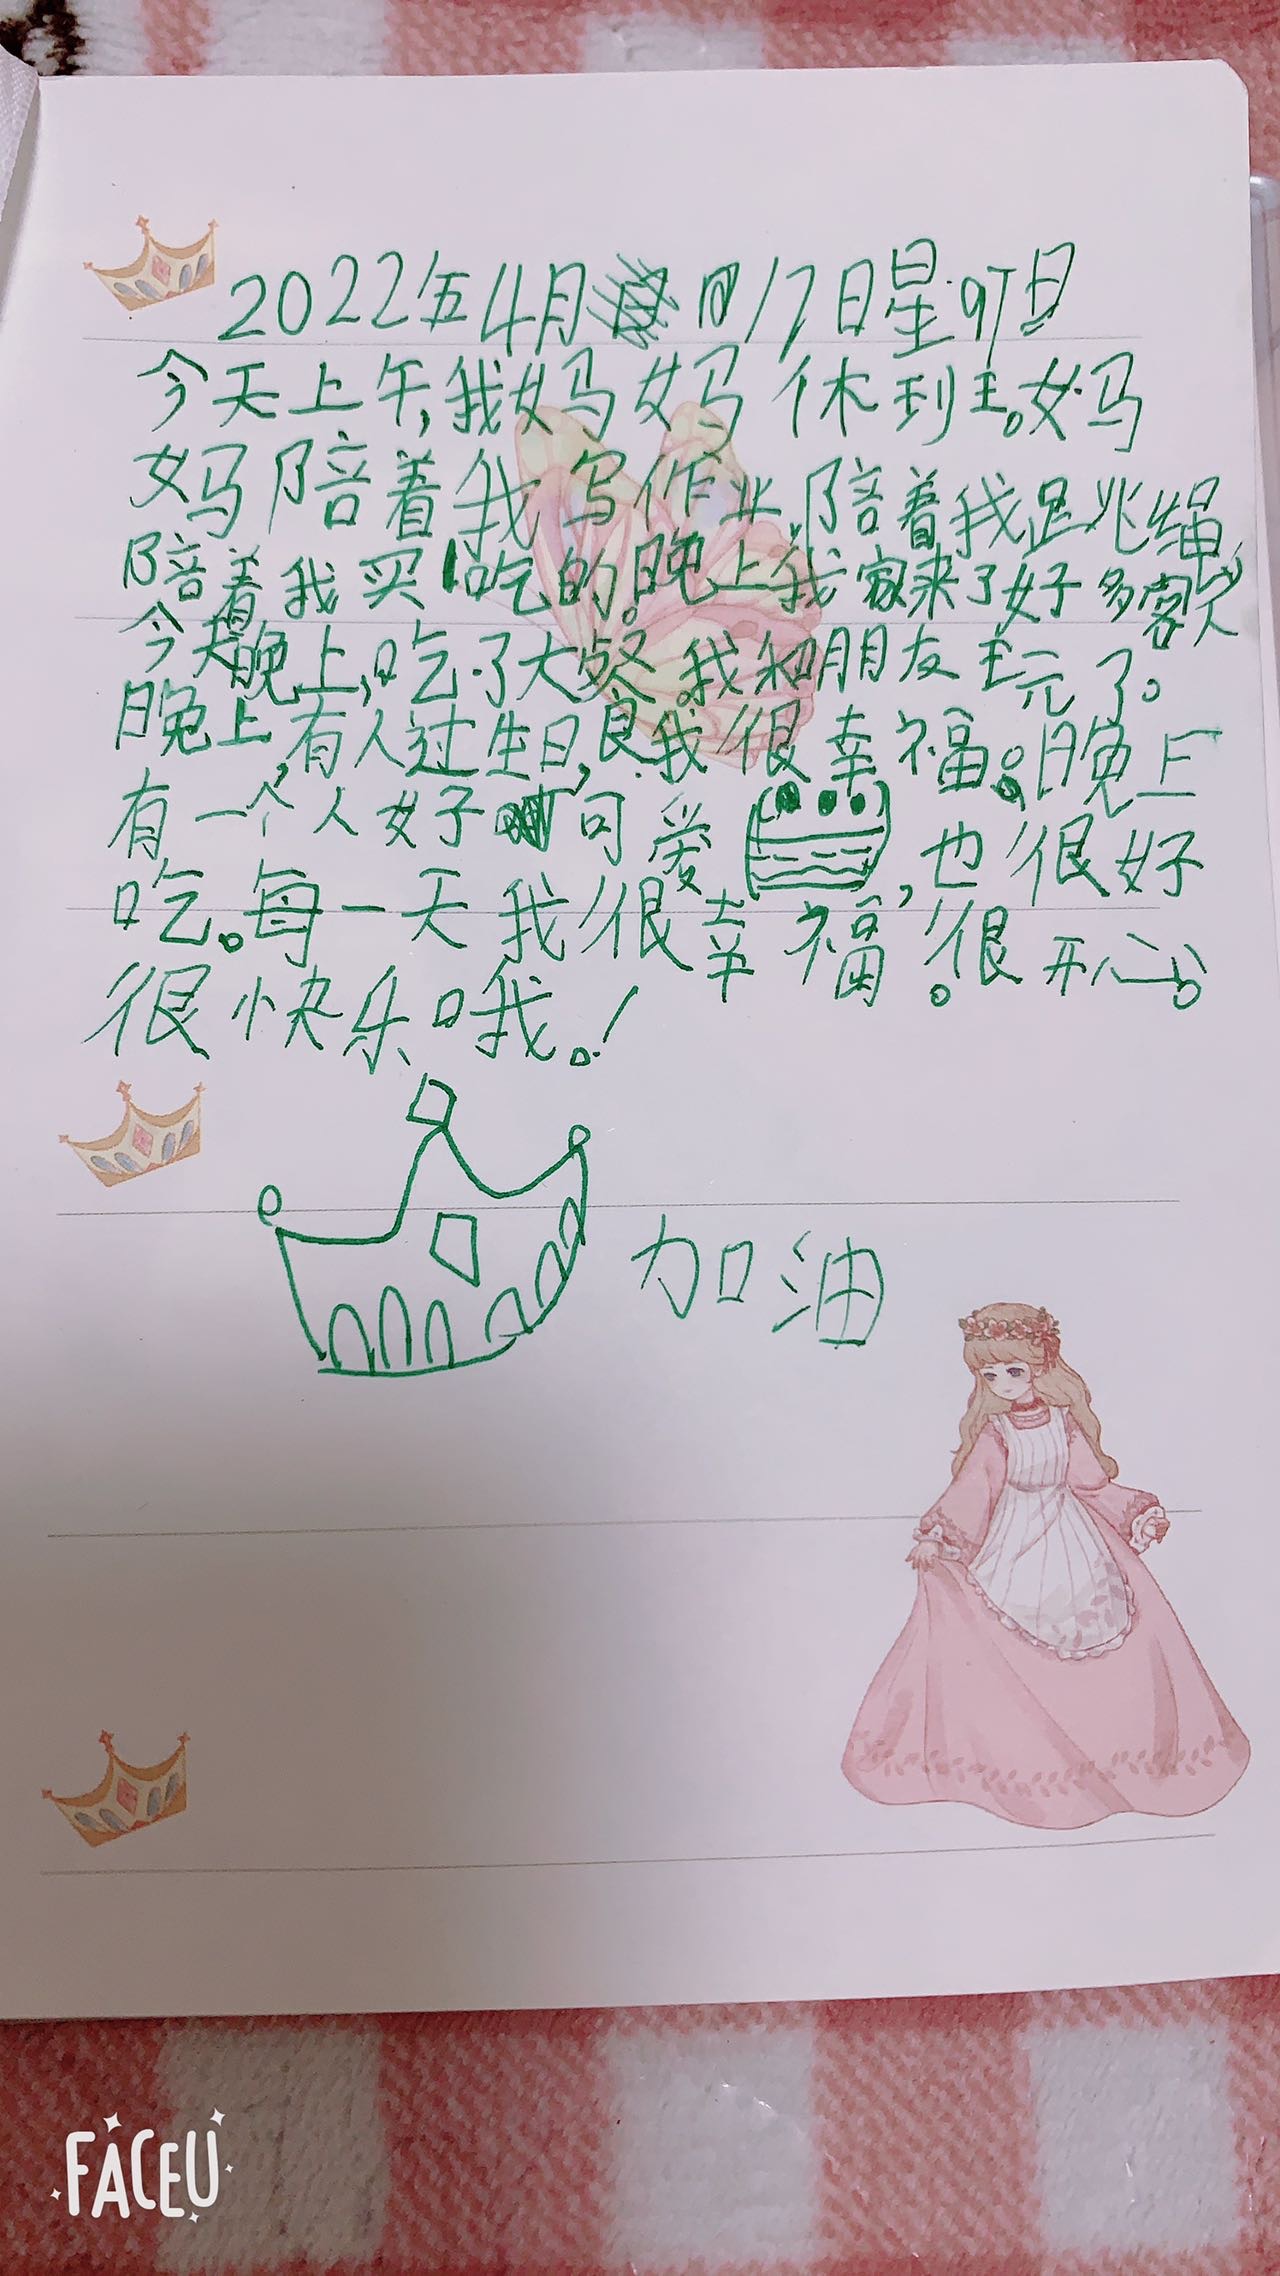 2022年4月17日星qT日
今天上午,我妈妈休班。妈
妈陪着我写作业,陪着我跳绳,
陪着我买吃的。晚上我家来了好多客人
今天晚上,吃了大餐,我和朋友玩了。
晚上,有人过生日,我很幸福。晚上
有一个人好可爱,也很好
吃。每一天我很幸福,很开心。
很快乐哦。!
加油
FACEU